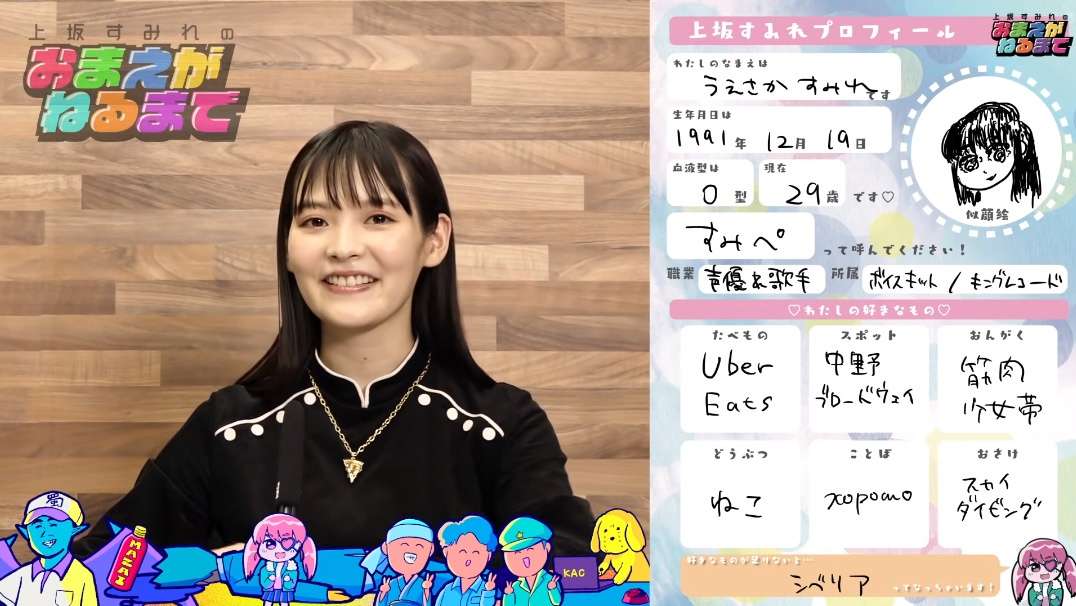 上坂すみれの
おまえが
ねるまで
蜀
MACAI
KAC
上坂すみれプロフィール
上坂すみれの
おまえが
ねるまで
わたしのなまえは
うえさか すみれです
生年月日は
1991年 12月 19日
血液型は
O 型
現在
29歳 です♡
すみぺ って呼んでください！
似顔絵
職業 声優&歌手 所属 ボイスキット / キングレコード
♡わたしの好きなもの♡
たべもの
Uber
Eats
スポット
中野
ブロードウェイ
おんがく
筋肉
少女帯
どうぶつ
ねこ
ことば
хорошо
おさけ
スカイ
ダイビング
好きなものが足りないと…
シベリア ってなっちゃいます！